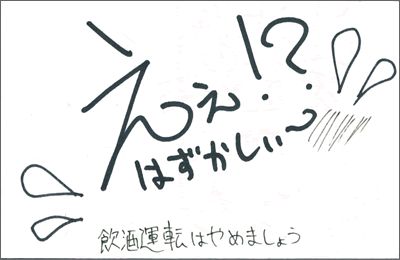 えぇ!?
はずかしい〜
飲酒運転はやめましょう